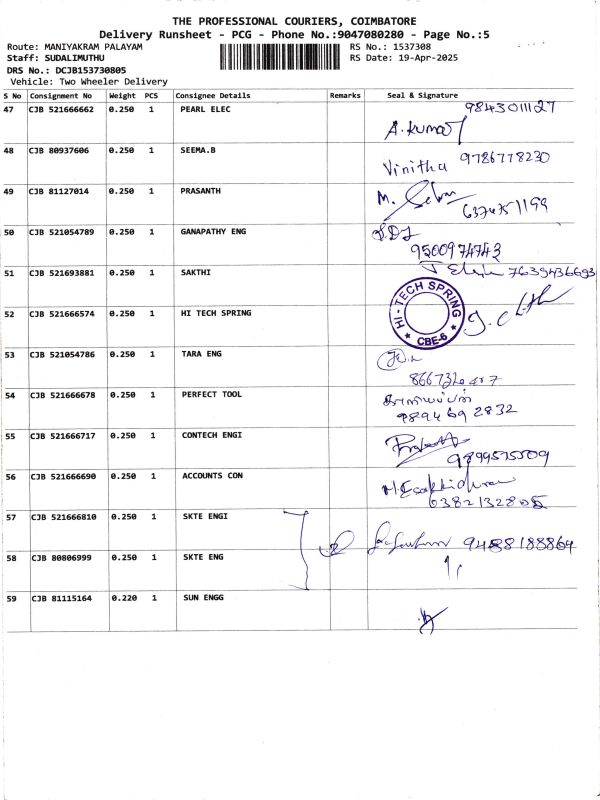 THE PROFESSIONAL COURIERS, COIMBATORE
Delivery Runsheet - PCG - Phone No.:9047080280 - Page No.:5
Route: MANIYAKRAM PALAYAM RS No.: 1537308
Staff: SUDALIMUTHU RS Date: 19-Apr-2025
DRS No.: DCJB153730805
Vehicle: Two Wheeler Delivery
S No Consignment No Weight PCS Consignee Details Remarks Seal & Signature
47 CJB 521666662 0.250 1 PEARL ELEC 9843011127
A.Kumar
48 CJB 80937606 0.250 1 SEEMA.B
Vinitha 9786778230
49 CJB 81127014 0.250 1 PRASANTH M.
6374751199
50 CJB 521054789 0.250 1 GANAPATHY ENG
9500974743
51 CJB 521693881 0.250 1 SAKTHI 7639436693
52 CJB 521666574 0.250 1 HI TECH SPRING
HI-TECH SPRING
CBE-6
53 CJB 521054786 0.250 1 TARA ENG
54 CJB 521666678 0.250 1 PERFECT TOOL
9894692832
55 CJB 521666717 0.250 1 CONTECH ENGI
9899575509
56 CJB 521666690 0.250 1 ACCOUNTS CON
57 CJB 521666810 0.250 1 SKTE ENGI
9488188864
58 CJB 80806999 0.250 1 SKTE ENG
59 CJB 81115164 0.220 1 SUN ENGG